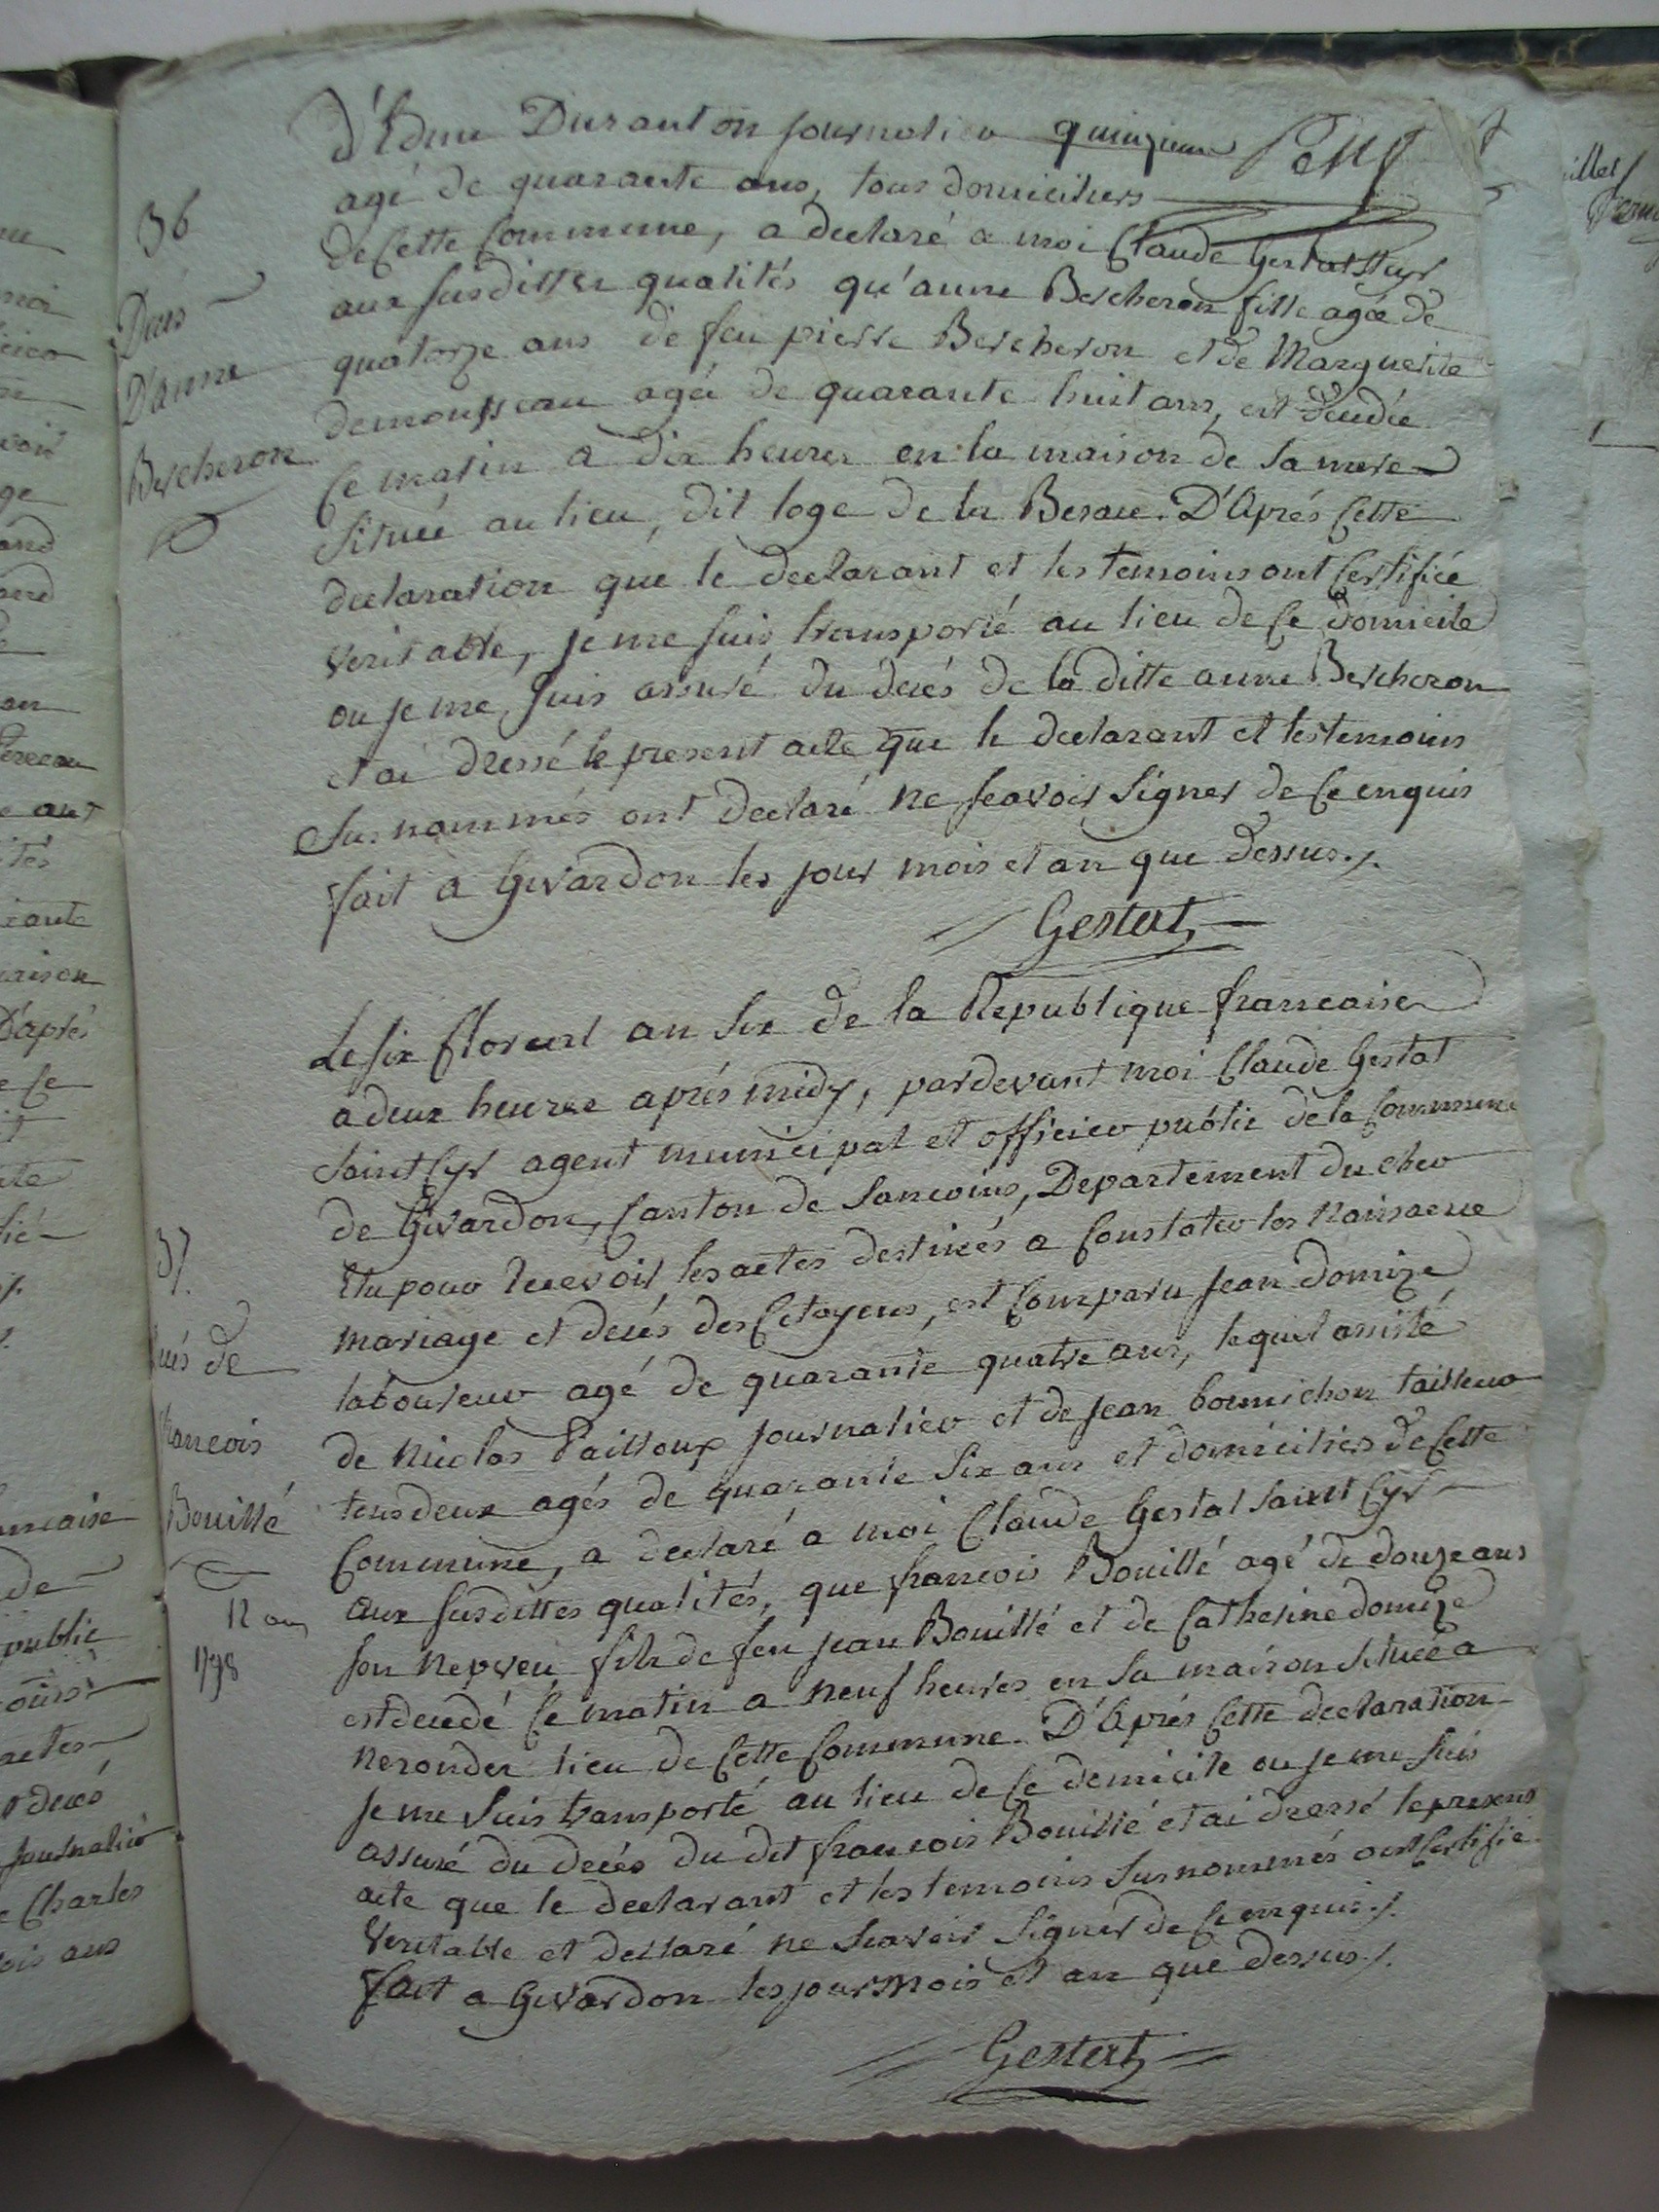 d'Edme Duranton journalier quinzieme
agé de quarante ans, tous domiciliers
de Cette Commune, a declaré a moi Claude Gestat St Cyr
aux susdittes qualités qu'anne Bercheron fille agée de
quatorze ans de feu pierre Bercheron et de Marguerite
demousseau agée de quarante huit ans, est decedée
Ce matin a dix heures en la maison de sa mere
Située au lieu, dit loge de la Besace. D'Aprés Cette
declaration que le declarant et les temoins ont Certifiée
veritable, je me suis transporté au lieu de Ce domicile
ou je me suis assuré du decés de la ditte anne Bercheron
et ai dressé le present acte que le declarant et les temoins
Susnommés ont declaré ne scavoir signer de Ce enquis
fait a Givardon les jour mois et an que dessus ./.
Gestat
36
Deces
D'anne
Bercheron
Le six floreal an six de la Republique francaise
a deux heures aprés midy, pardevant moi Claude Gestat
Saint Cyr agent municipal et officier public de la Commune
de Givardon, Canton de Sancoins, Departement du Cher
Elu pour recevoir les actes destinés a Constater les naissance
mariage et decés des Citoyens, est Comparu jean domize
laboureur agé de quarante quatre ans, lequel assisté
de nicolas Pailloux journalier et de jean bornichon tailleur
tous deux agés de quarante six ans et domiciliers de Cette
Commune, a declaré a moi Claude Gestat Saint Cyr
aux susdittes qualités, que francois Bouillé agé de douze ans
son nepveu fils de feu jean Bouillé et de Catherine domize
est decedé Ce matin a neuf heures en sa maison Située a
neronder lieu de Cette Commune. D'Aprés Cette declaration
je me suis transporté au lieu de Ce domicile ou je me suis
assuré du decés du dit francois Bouillé et ai dressé le present
acte que le declarant et les temoins Susnommés ont Certifié
veritable et declaré ne scavoir signer de Ce enquis ./.
fait a Givardon les jour mois et an que dessus ./.
Gestat
37.
de
francois
Bouillé
12 ans
1798